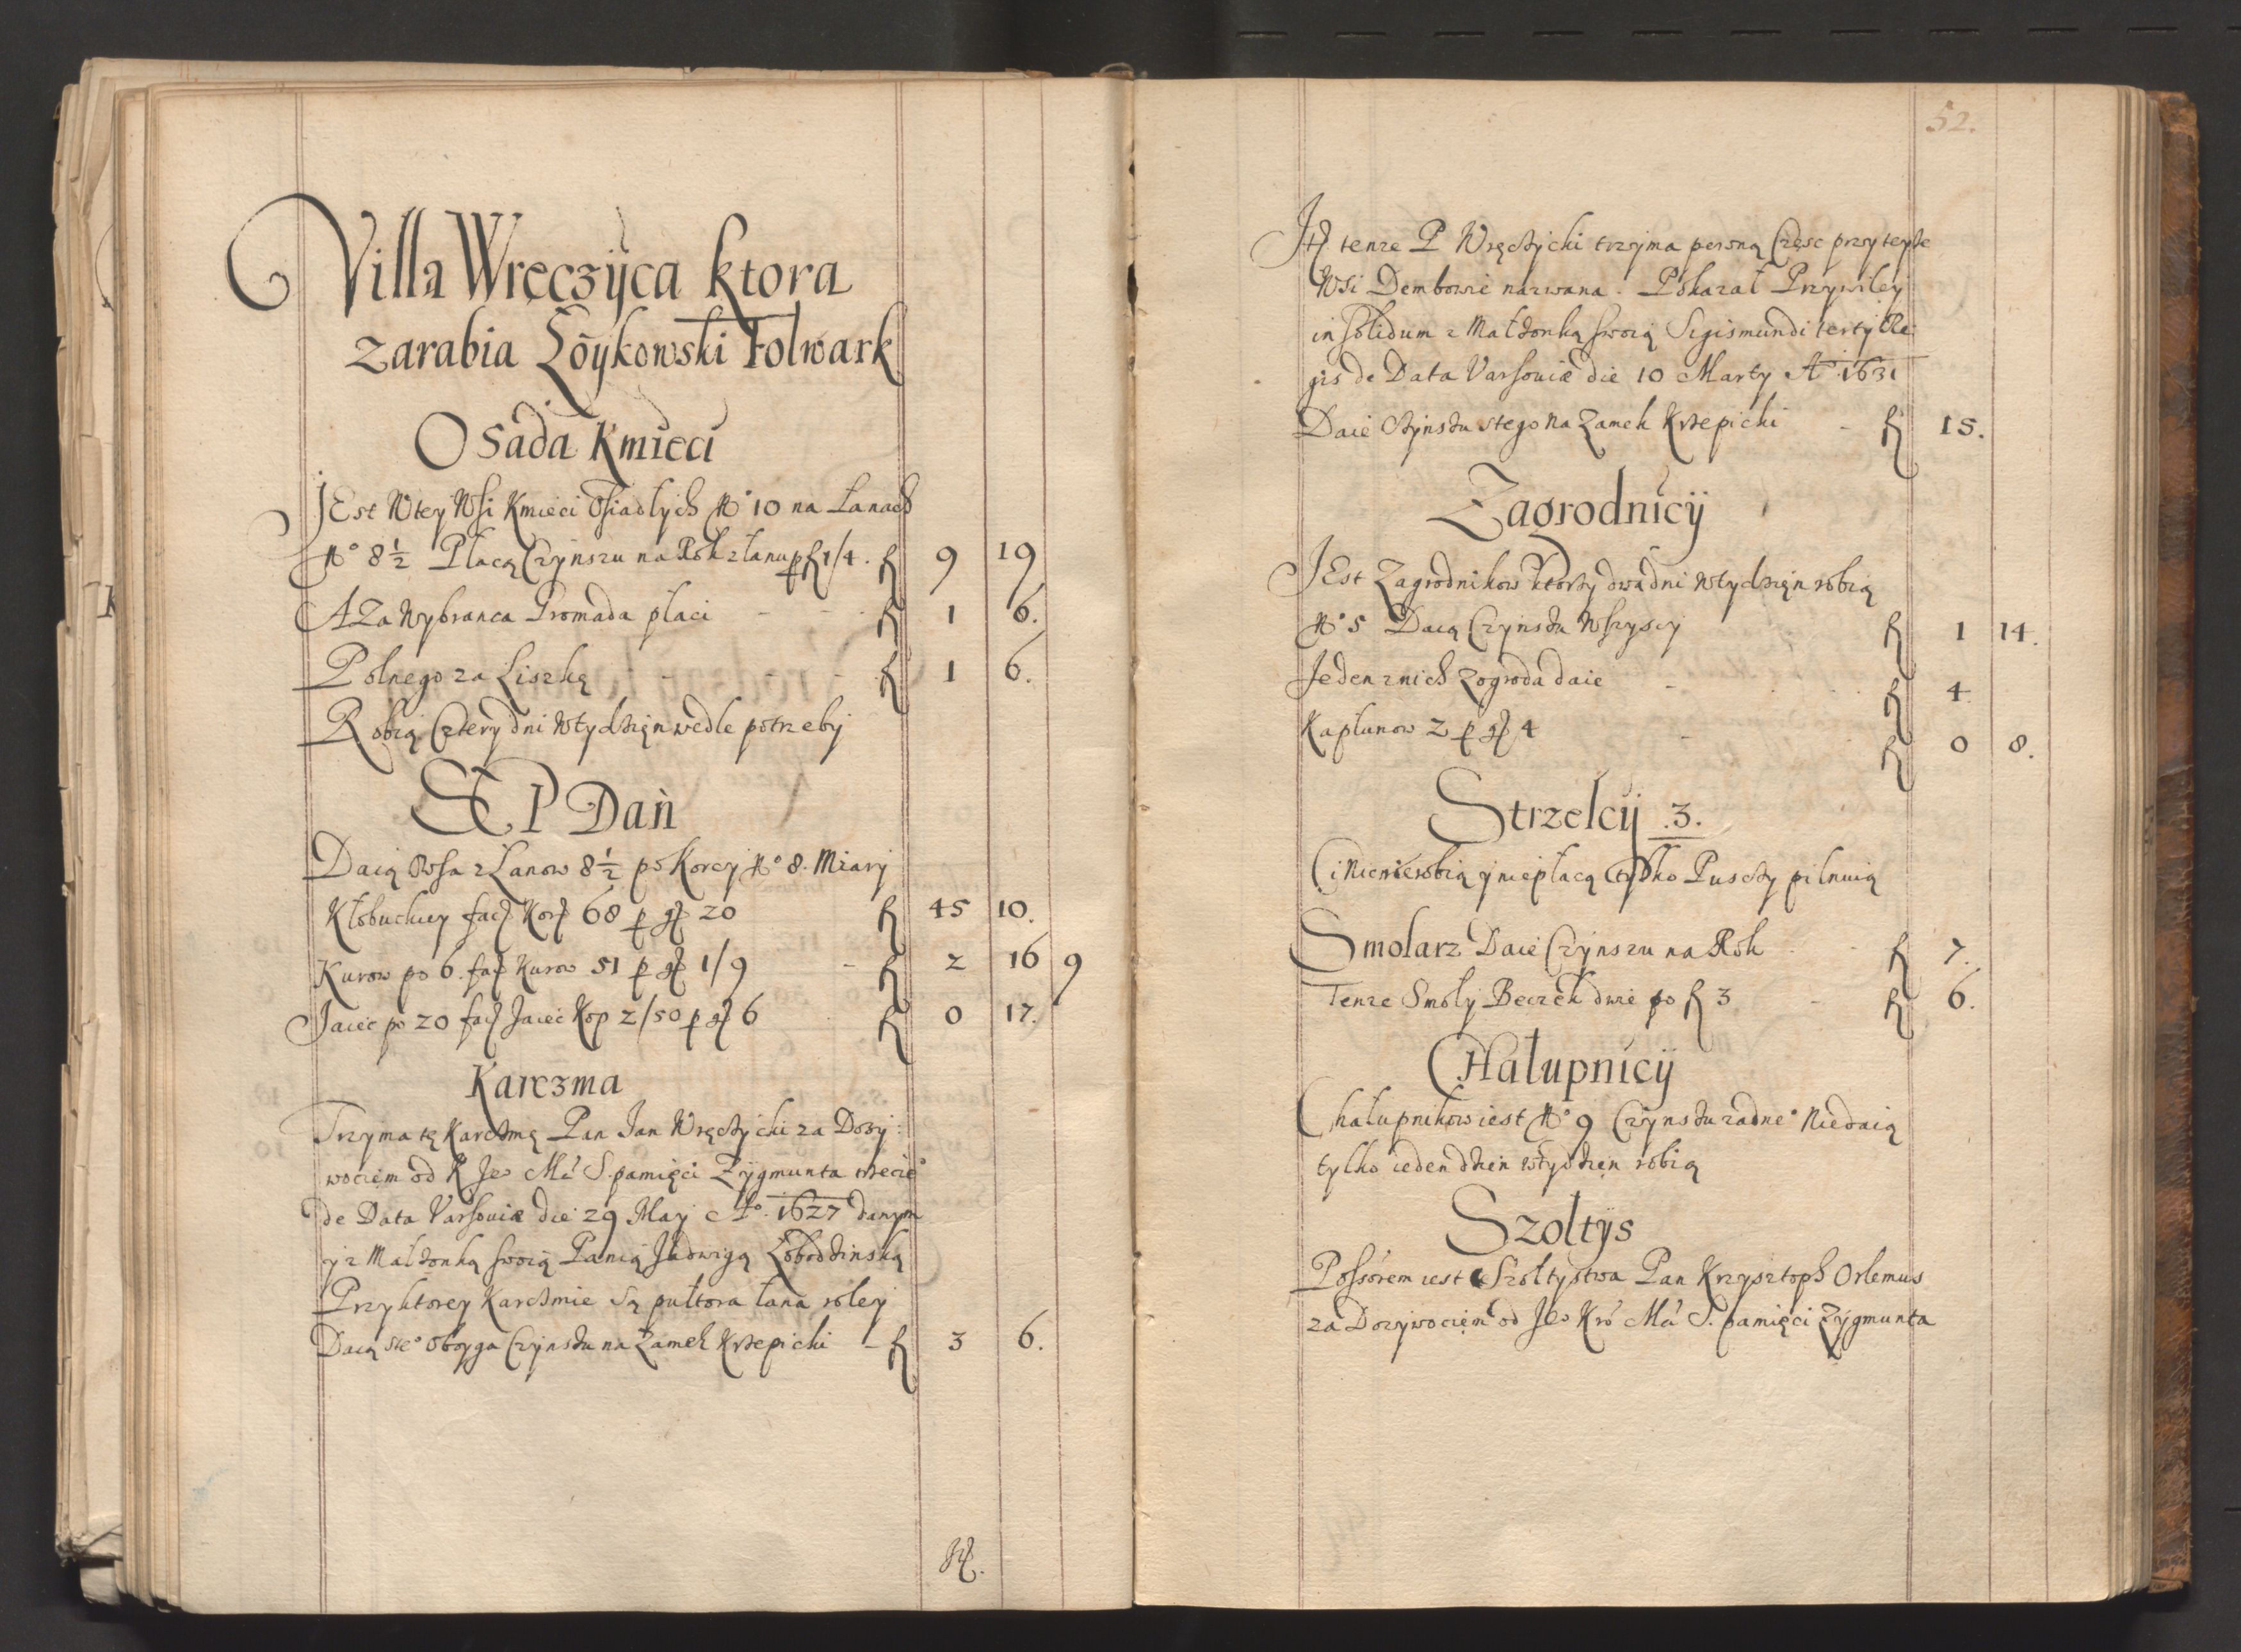 Villa Wręczÿca ktora
zarabia Łoÿkowski Folwark
Osada Kmieci
JEst Wtey Wsi Kmieci Osiadłych No 10 na Łanach
No 8 1/2 Płacą Czÿnszu na Rok złanu p f 1/4. f 9 19
A Za Wybranca Gromada płaci - - f 1 6.
Polnego za Liszkę - - - f 1 6.
Robią Cztery dni Wtydzięn wedle potrzeby
Dań
Daią Owsa z Łanow 8 1/2 po Korcy No 8. Miary
Kłobuckiey fac Kor 68 p g 20 f 45 10.
Kurow po 6. fac Kurow 51 p g 1/9 - f 2 16 9
Jaiec po 20 fac Jaiec Kop 2/50 p g 6 f 0 17.
Karczma
Trzyma tę Karczmę Pan Jan Wręczÿcki za Dozy:
wociem od K Je° Mći S. pamięci Zÿgmunta trzecie°
de Data Varsoviæ die 29 Maÿ A°. 1627 danym
ÿ z Małżonką swoią Panią Jadwigą Łobodzinską
Przyktorey Karczmie Są pułtora łana roley
Daią ste° oboyga Czÿnszu na Zamek Krzepicki - f 3 6.
52.
It tenze P Wręczÿcki trzyma pewną Częsc przy teyze
Wsi Dembowie nazwana. Pokazał Przywiley
in solidum z Małżonką swoią Sigismundi tertÿ Re:
gis de Data Varsoviæ die 10 Marty A° 1631
Daie Czÿnszu stego Na Zamek Krzepicki - f 15.
Zagrodnicÿ
JEst Zagrodnikow ktorzy dwa dni Wtydzięn robią
No 5 Daią Czÿnszu Wszyscy f 1 14.
Jeden znich zogroda daie - f 4
Kapłunow 2 p g 4 - f 0 8.
Strzelcÿ .3.
Ci Nicnierobią ÿ niepłacą tylko Puszczy pilnuią
Smolarz Daie Czÿnszu na Rok - f 7.
Tenze Smoły Beczek dwie po f 3 - f 6.
CHałupnicÿ
Chałupnikow iest No 9 Czÿnszu zadne° Niedaią
tylko ieden dzien wtydzien robią
Szołtÿs
Possorem iest Szołtystwa Pan Krzysztoph Orlemus
za Dozywociem od Je° Kro Mći S. pamięci Zÿgmunta